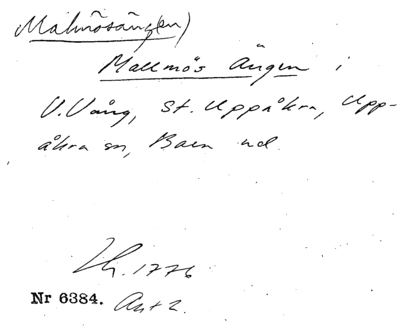 Malmösängen)
Mallmös Ängen i
V. Vång, St. Uppåkra, Upp-
åkra sn, Bara hd.
Lh. 1776
Nr 6384. Akt 2.